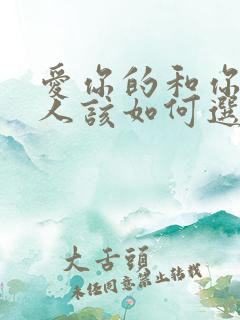 愛你的和你
人該如何選
大舌頭
未经同意禁止转载